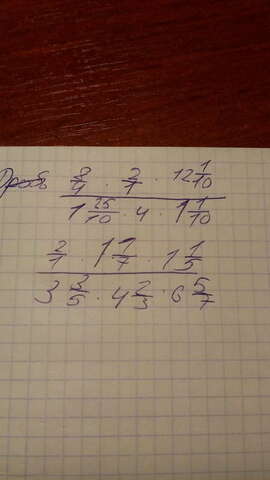 Дробь 8/4 · 2/1 · 12 1/10
1 25/10 · 4 · 1 1/10
2/1 · 1 1/7 · 1 1/5
3 3/5 · 4 2/3 · 6 5/7